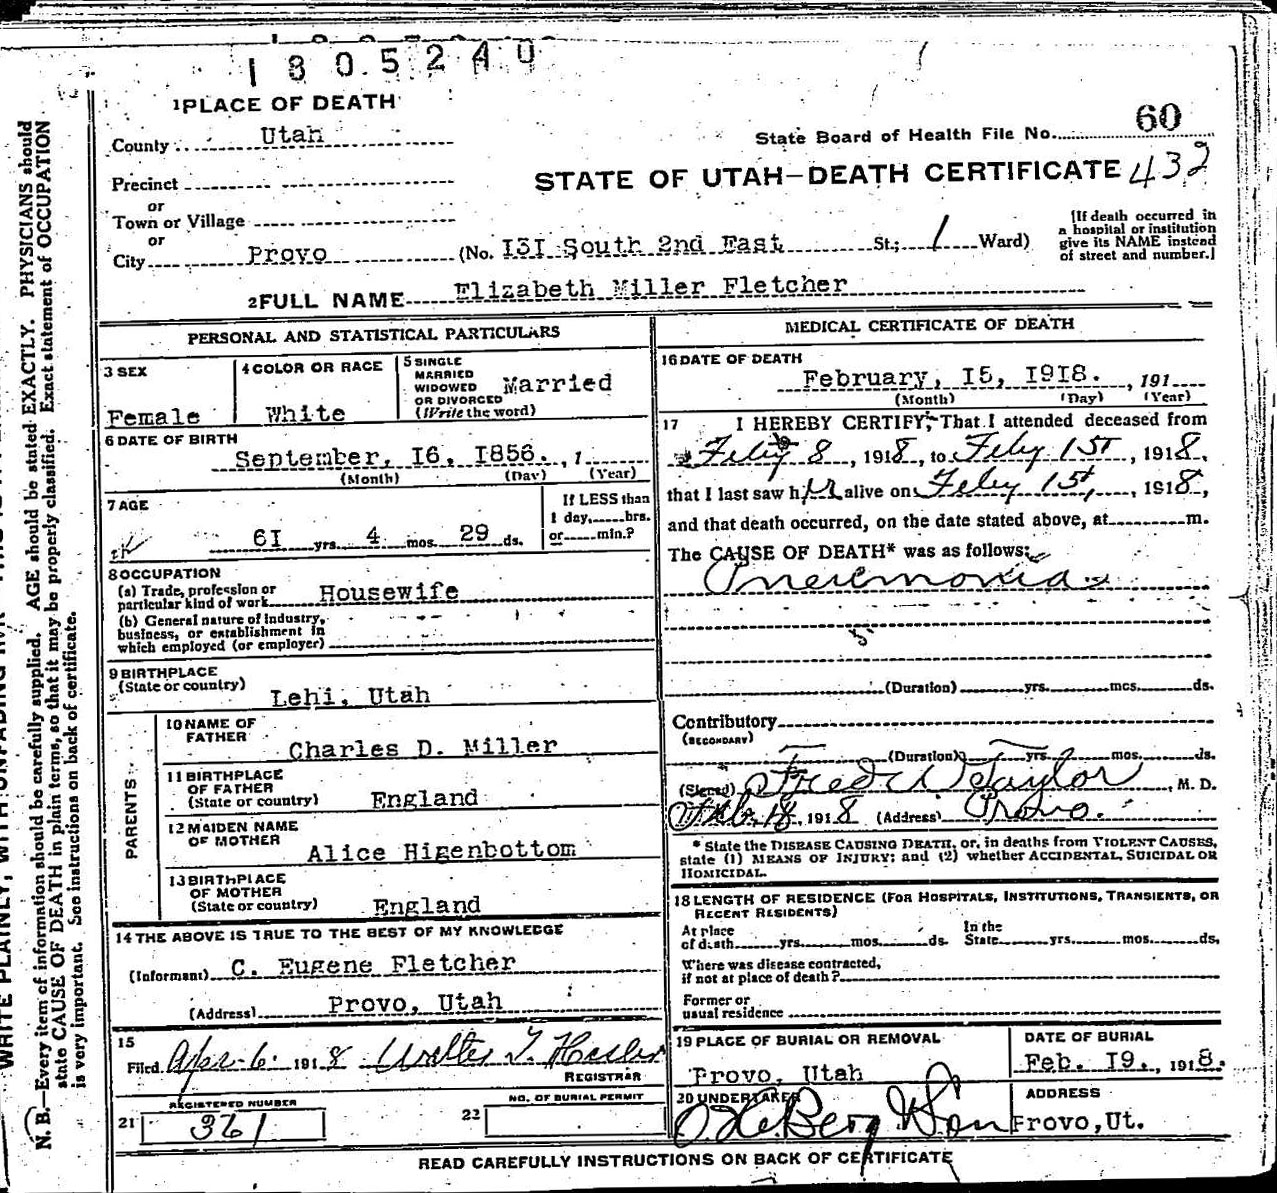 1805240
1 PLACE OF DEATH
County Utah
State Board of Health File No. 60
Precinct
STATE OF UTAH—DEATH CERTIFICATE 432
or
Town or Village
or
City Provo (No. 131 South 2nd East St.; 1 Ward)
[If death occurred in
a hospital or institution
give its NAME instead
of street and number.]
2 FULL NAME Elizabeth Miller Fletcher
PERSONAL AND STATISTICAL PARTICULARS
3 SEX
Female
4 COLOR OR RACE
White
5 SINGLE
MARRIED
WIDOWED
OR DIVORCED
(Write the word)
Married
6 DATE OF BIRTH
September, 16, 1856. , 1
(Month) (Day) (Year)
7 AGE
61 yrs. 4 mos. 29 ds.
If LESS than
1 day, hrs.
or min.?
8 OCCUPATION
(a) Trade, profession or
particular kind of work Housewife
(b) General nature of industry,
business, or establishment in
which employed (or employer)
9 BIRTHPLACE
(State or country)
Lehi, Utah
PARENTS
10 NAME OF
FATHER
Charles D. Miller
11 BIRTHPLACE
OF FATHER
(State or country) England
12 MAIDEN NAME
OF MOTHER
Alice Higenbottom
13 BIRTHPLACE
OF MOTHER
(State or country) England
14 THE ABOVE IS TRUE TO THE BEST OF MY KNOWLEDGE
(Informant) C. Eugene Fletcher
(Address) Provo, Utah
15
Filed Apr 6 1918 Walter T. Hasler
REGISTRAR
REGISTERED NUMBER
21 361
NO. OF BURIAL PERMIT
22
MEDICAL CERTIFICATE OF DEATH
16 DATE OF DEATH
February, 15, 1918. , 191
(Month) (Day) (Year)
17 I HEREBY CERTIFY, That I attended deceased from
Feby 8, 1918, to Feby 15, 1918,
that I last saw her alive on Feby 15, 1918,
and that death occurred, on the date stated above, at m.
The CAUSE OF DEATH* was as follows:
Pneumonia
(Duration) yrs. mos. ds.
Contributory
(SECONDARY)
(Duration) yrs. mos. ds.
(Signed) Fred W Taylor, M. D.
Feb. 18, 1918 (Address) Provo.
* State the DISEASE CAUSING DEATH, or, in deaths from VIOLENT CAUSES,
state (1) MEANS OF INJURY; and (2) whether ACCIDENTAL, SUICIDAL OR
HOMICIDAL.
18 LENGTH OF RESIDENCE (FOR HOSPITALS, INSTITUTIONS, TRANSIENTS, OR
RECENT RESIDENTS)
At place
of death yrs. mos. ds.
In the
State yrs. mos. ds.
Where was disease contracted,
if not at place of death?
Former or
usual residence
19 PLACE OF BURIAL OR REMOVAL
Provo, Utah
DATE OF BURIAL
Feb. 19., 1918.
20 UNDERTAKER
O. H. Berg & Son
ADDRESS
Provo, Ut.
READ CAREFULLY INSTRUCTIONS ON BACK OF CERTIFICATE
N. B.—Every item of information should be carefully supplied. AGE should be stated EXACTLY. PHYSICIANS should
state CAUSE OF DEATH in plain terms, so that it may be properly classified. Exact statement of OCCUPATION
is very important. See instructions on back of certificate.
WRITE PLAINLY, WITH UNFADING INK